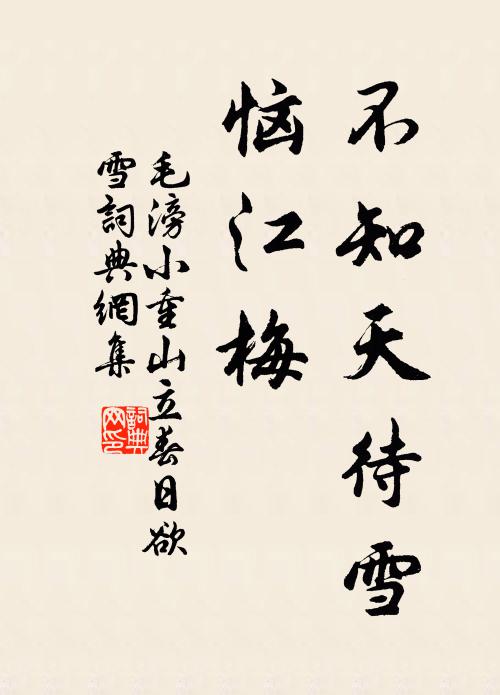 不知天待雪
恼江梅
毛滂小重山立春日欲
雪詞典網集
詞典
网印